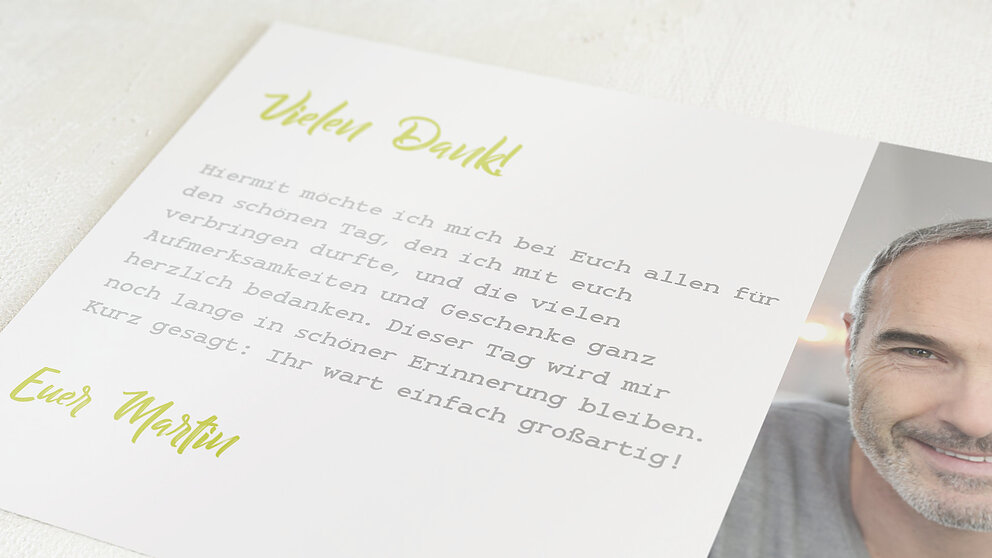 Vielen Dank!
Hiermit möchte ich mich bei Euch allen für
den schönen Tag, den ich mit euch
verbringen durfte, und die vielen
Aufmerksamkeiten und Geschenke ganz
herzlich bedanken. Dieser Tag wird mir
noch lange in schöner Erinnerung bleiben.
Kurz gesagt: Ihr wart einfach großartig!
Euer Martin